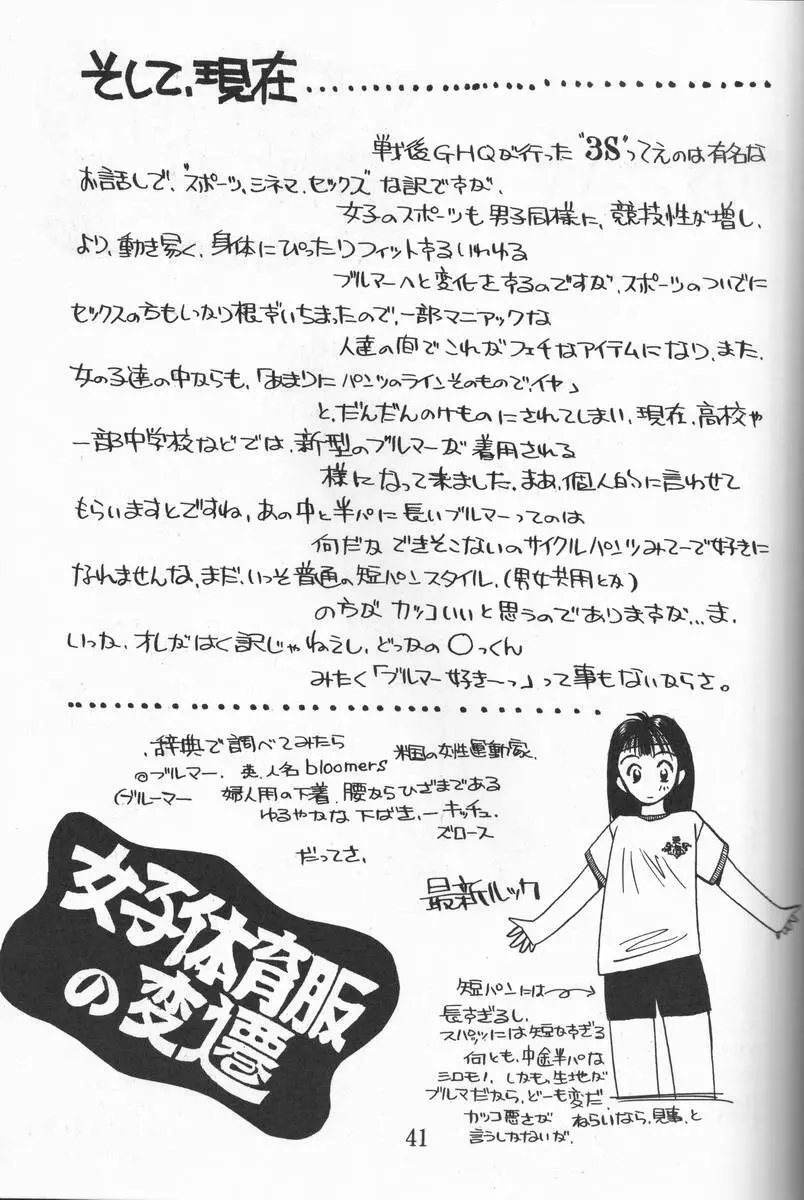 そして、現在
戦後GHQが行った"3S"ってえのは有名な
お話しで、"スポーツ、シネマ、セックス"な訳ですが、
女子のスポーツも男子同様に、競技性が増し、
より、動き易く、身体にぴったりフィットするいわゆる
ブルマーへと変化をするのですが、スポーツのついでに
セックスの方もしっかり根ずいちまったので、一部マニアックな
人達の間でこれがフェチなアイテムになり、また、
女の子達の中からも、「あまりにパンツのラインそのもので、イヤ」
と、だんだんのけものにされてしまい、現在、高校や
一部中学校などでは、新型のブルマーが着用される
様になって来ました。まあ、個人的に言わせて
もらいますとですね、あの中と半パに長いブルマーってのは
何だかできそこないのサイクルパンツみてーで好きに
なれませんな、まだ、いっそ普通の短パンスタイル、(男女共用とか)
の方がカッコいいと思うのでありますが...ま、
いっか、オレがはく訳じゃねえし、どっかの〇っくん
みたく「ブルマー好き〜っ」って事もないからさ。
辞典で調べてみたら
◎ブルマー、英、人名bloomers 米国の女性運動家、
(ブルーマー 婦人用の下着、腰からひざまである
ゆるやかな下ばき、ーキッチュ、
ズロース
だってさ、
女子体育服
の変遷
最新ルック
短パンには
長すぎるし、
スパッツには短かすぎる
何とも、中途半パな
シロモノ、しかも、生地が
ブルマだから、どーも変だ、
カッコ悪さがねらいなら、見事、と
言うしかないが、
41